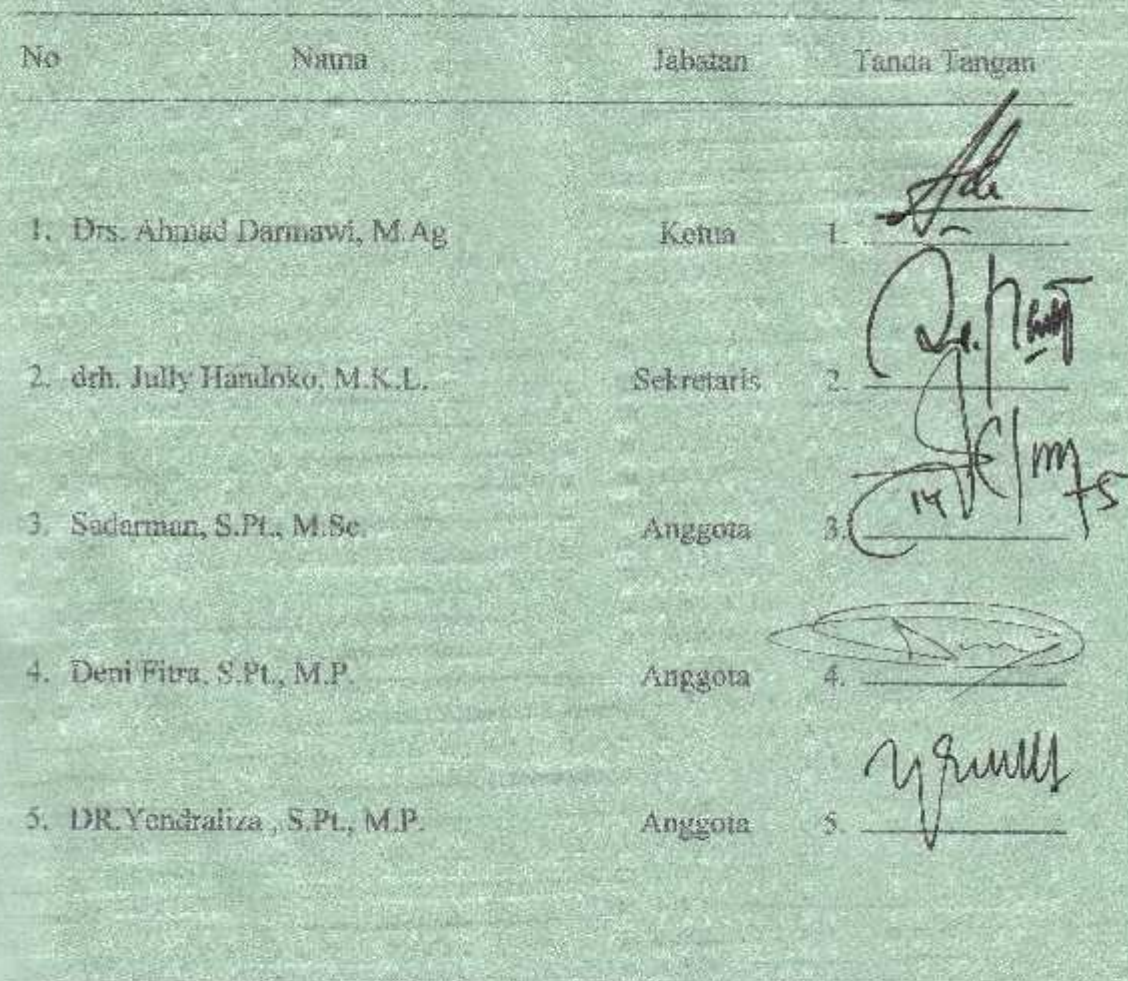 No Nama Jabatan Tanda Tangan
1. Drs. Ahmad Darmawi, M.Ag Ketua 1.
2. drh. Jully Handoko, M.K.L. Sekretaris 2.
3. Sadarman, S.Pt., M.Sc. Anggota 3.
4. Deni Fitra, S.Pt., M.P. Anggota 4.
5. DR.Yendraliza , S.Pt., M.P. Anggota 5.